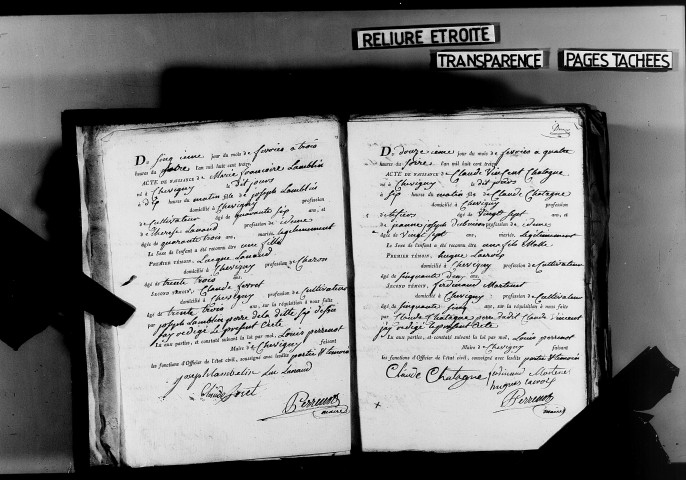 RELIURE ETROITE
TRANSPARENCE
PAGES TACHEES
Du sinq ieme jour du mois de fevrier a trois
heures du soire l'an mil huit cent treize
ACTE DE NAISSANCE de Marie francoise Lamblin
né à Chevigny le dit jours
à sip heures du matin fils de joseph Lamblin
domicilié à Chevigny profession
de Cultivateur âgé de quarante sip ans, et
de therese Lanaud profession de idem
âgée de quarante trois ans, mariés legitimement
Le sexe de l'enfant a été reconnu être une fille
PREMIER TÉMOIN, Lucque Lanaud
domicilié à Chevigny profession de Charon
âgé de trente trois ans.
SECOND TÉMOIN, Claude ferret
domicilié à Chevigny profession de Cultivateur
âgé de trente trois ans, sur la réquisition à nous faite
par joseph Lamblin perre de la ditte
jay redigé le present Acte
Lu aux parties, et constaté suivant la loi par moi, Louis perrenot
Maire de Chevigny faisant
les fonctions d'Officier de l'état civil, soussigné avec lesdits partie & temoin
joseph lambelin Luc Lanaud
Claude foret
Perrenot
maire
Du douze ieme jour du mois de fevrier a quatre
heures du soire l'an mil huit cent treize
ACTE DE NAISSANCE de Claude Vincent Chatagne
né à Chevigny le dit jours
à sip heures du matin fils de Claude Chatagne
domicilié à Chevigny profession
de âgé de vingt sept ans, et
de jeanne josephe profession de idem
âgée de vingt sept ans, mariés legitimement
Le sexe de l'enfant a été reconnu être un fils Malle
PREMIER TÉMOIN, hugue Lacroix
domicilié à Chevigny profession de Cultivateur
âgé de sinquante deux ans.
SECOND TÉMOIN, ferdinand Martinet
domicilié à Chevigny profession de Cultivateur
âgé de sinquante sinq ans, sur la réquisition à nous faite
par Claude Chatagne perre dudit Claude vincent
jay redigé le present Acte
Lu aux parties, et constaté suivant la loi par moi, Louis perrenot
Maire de Chevigny faisant
les fonctions d'Officier de l'état civil, soussigné avec lesdits partie & temoin
Claude Chatagne ferdinand Martene
hugues lacroix
Perrenot
maire